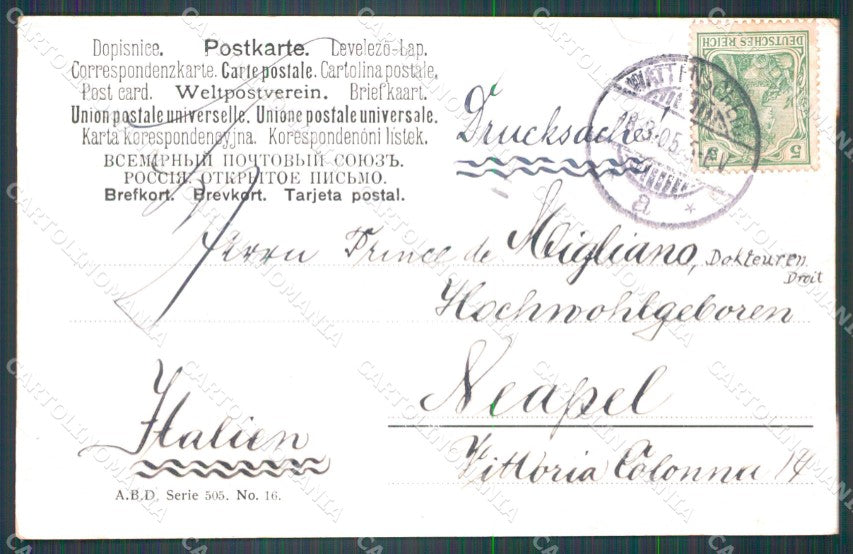 Dopisnice. Postkarte. Levelezö-Lap.
Correspondenzkarte. Carte postale. Cartolina postale.
Post card. Weltpostverein. Briefkaart.
Union postale universelle. Unione postale universale.
Karta korespondencyjna. Korespondenóni listek.
ВСЕМІРНЫЙ ПОЧТОВЫЙ СОЮЗЪ.
РОССІЯ. ОТКРЫТОЕ ПИСЬМО.
Brefkort. Brevkort. Tarjeta postal.
DEUTSCHES REICH
5
WATTENSCHEID
a *
Drucksache!
Herrn Prince de Migliano, Dokteur en
Droit
Hochwohlgeboren
Neapel
Italien
Vittoria Colonna 14
A.B.D. Serie 505. No. 16.
CARTOLINOMANIA